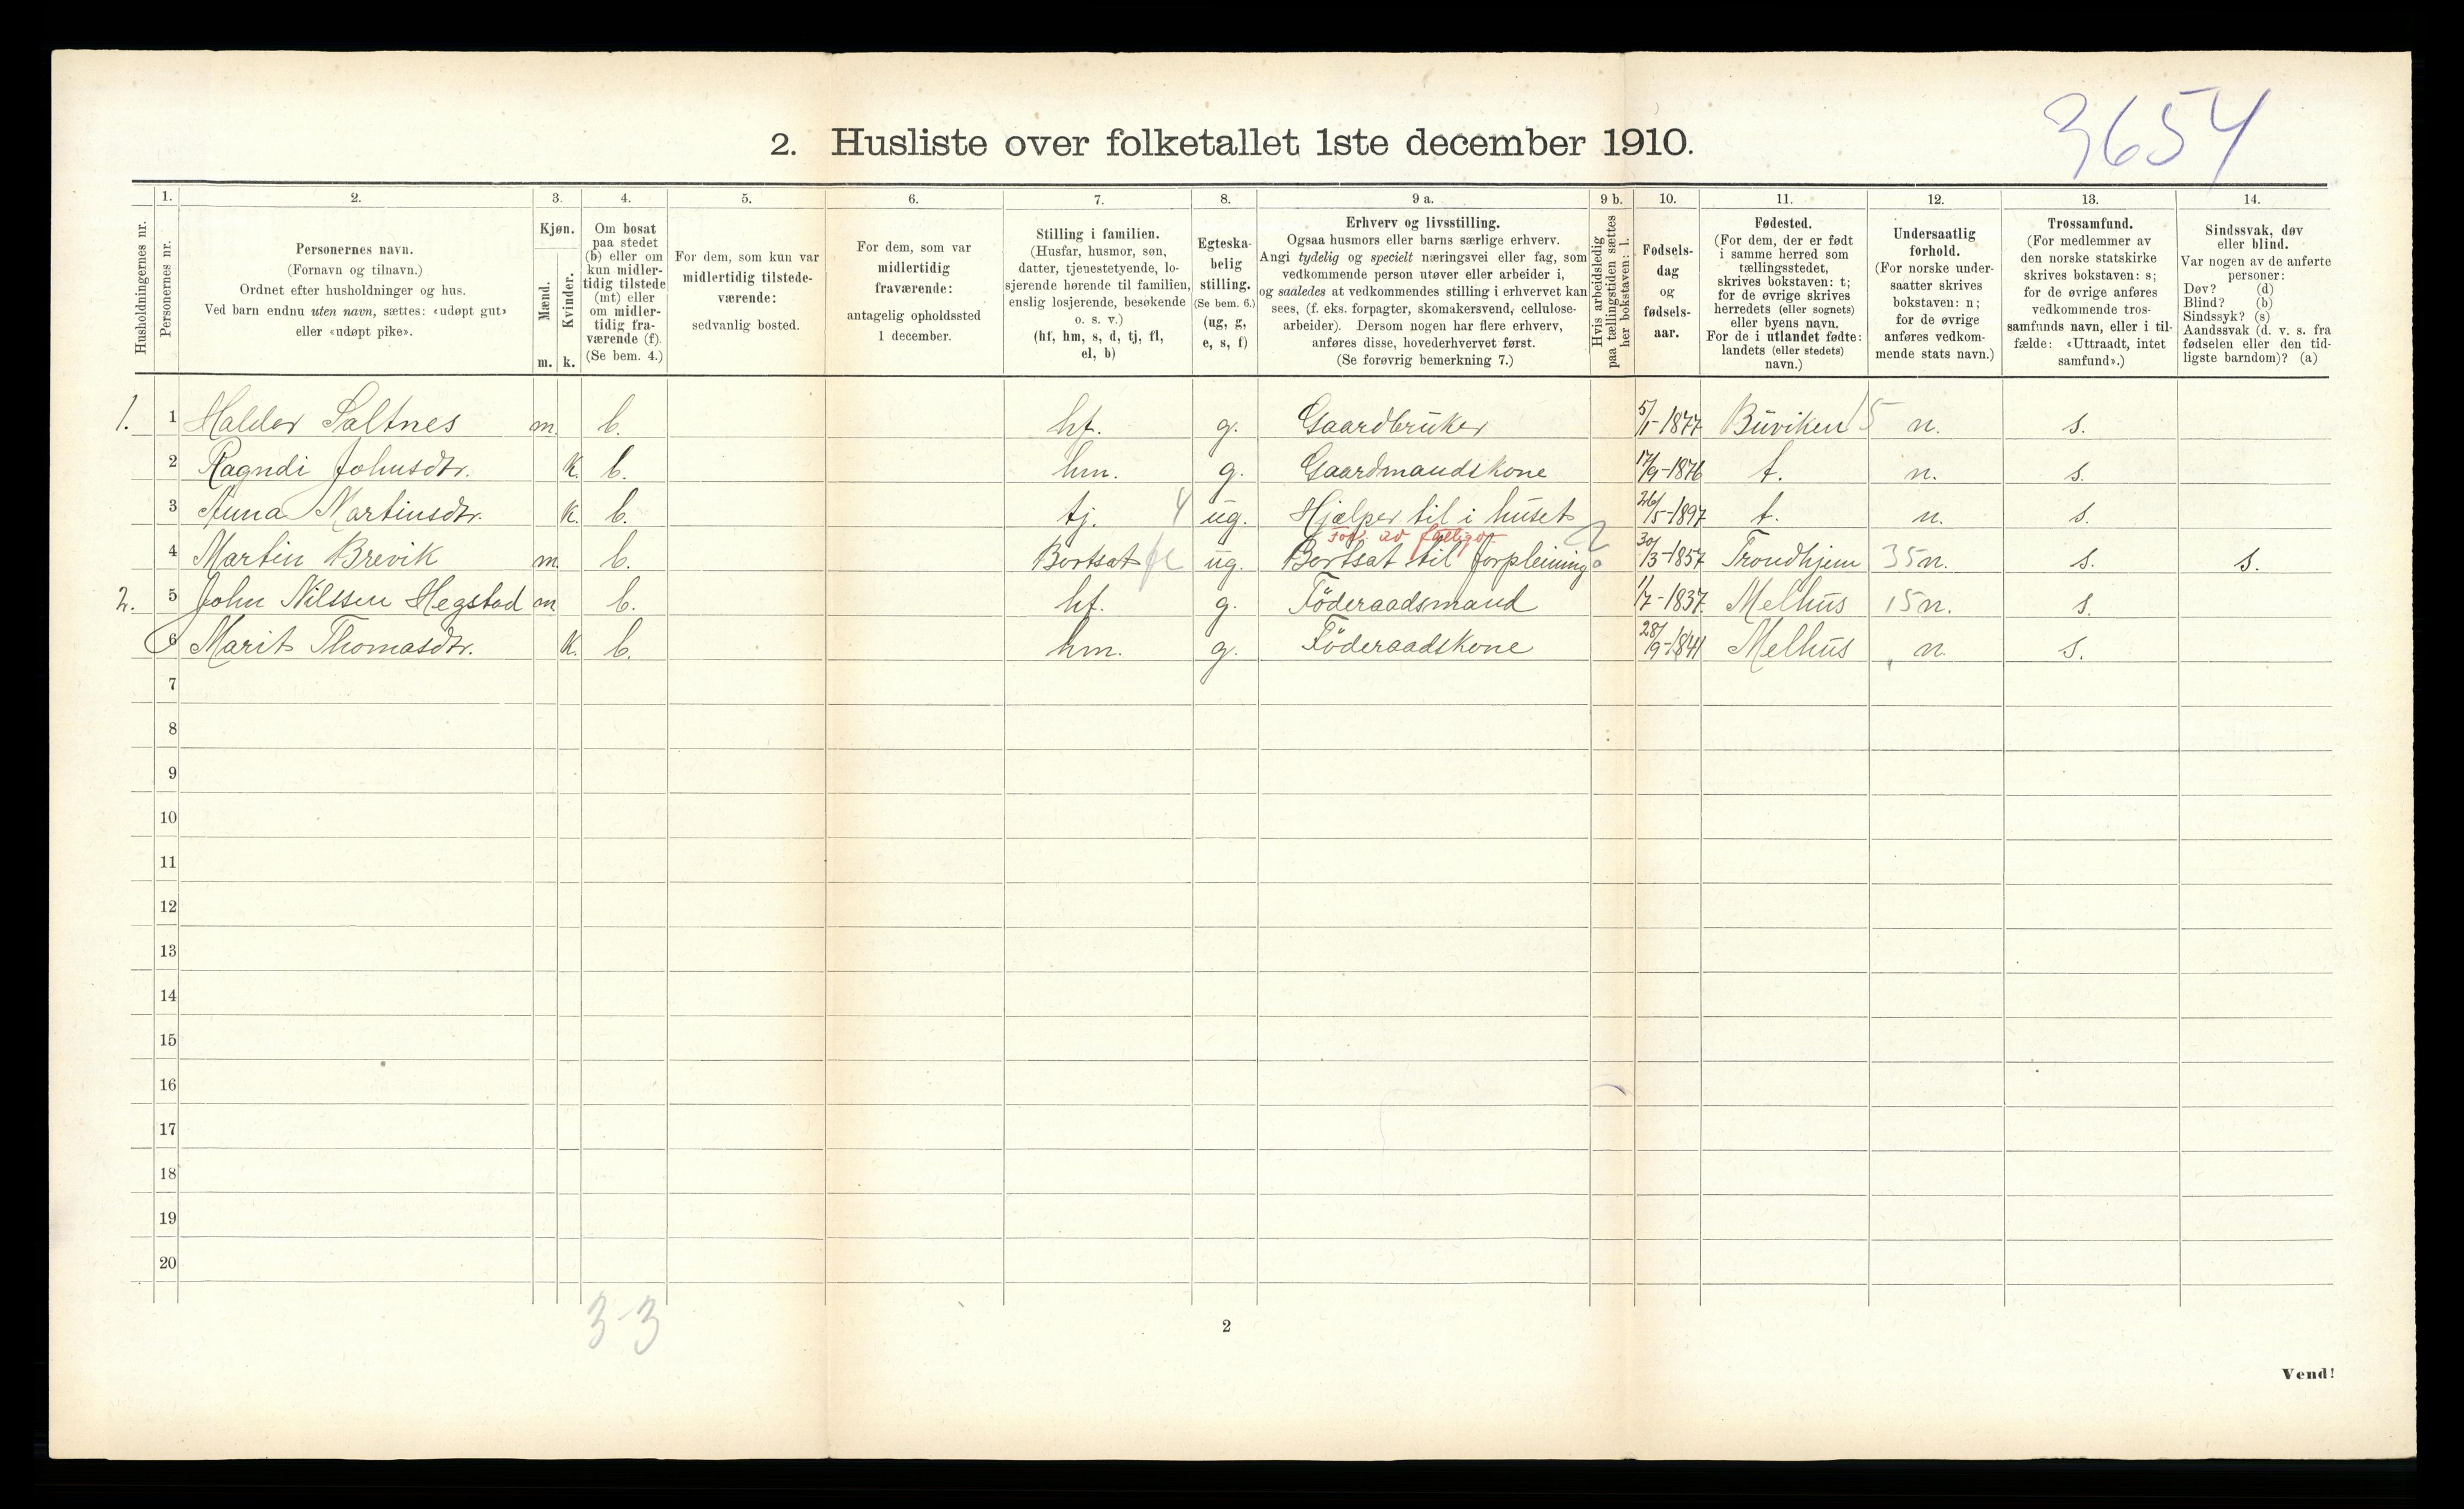 3654
2. Husliste over folketallet 1ste december 1910.
Husholdningernes nr.
1.
Personernes nr.
2.
Personernes navn.
(Fornavn og tilnavn.)
Ordnet efter husholdninger og hus.
Ved barn endnu uten navn, sættes: «udøpt gut»
eller «udøpt pike».
3.
Kjøn.
Mænd.
m.
Kvinder.
k.
4.
Om bosat
paa stedet
(b) eller om
kun midler-
tidig tilstede
(mt) eller
om midler-
tidig fra-
værende (f).
(Se bem. 4.)
5.
For dem, som kun var
midlertidig tilstede-
værende:
sedvanlig bosted.
6.
For dem, som var
midlertidig
fraværende:
antagelig opholdssted
1 december.
7.
Stilling i familien.
(Husfar, husmor, søn,
datter, tjenestetyende, lo-
sjerende hørende til familien,
enslig losjerende, besøkende
o. s. v.)
(hf, hm, s, d, tj, fl,
el, b)
8.
Egteska-
belig
stilling.
(Se bem. 6.)
(ug, g,
e, s, f)
9 a.
Erhverv og livsstilling.
Ogsaa husmors eller barns særlige erhverv.
Angi tydelig og specielt næringsvei eller fag, som
vedkommende person utøver eller arbeider i,
og saaledes at vedkommendes stilling i erhvervet kan
sees, (f. eks. forpagter, skomakersvend, cellulose-
arbeider). Dersom nogen har flere erhverv,
anføres disse, hovederhvervet først.
(Se forøvrig bemerkning 7.)
9 b.
Hvis arbeidsledig
paa tællingstiden sættes
her bokstaven: l.
10.
Fødsels-
dag
og
fødsels-
aar.
11.
Fødested.
(For dem, der er født
i samme herred som
tællingsstedet,
skrives bokstaven: t;
for de øvrige skrives
herredets (eller sognets)
eller byens navn.
For de i utlandet fødte:
landets (eller stedets)
navn.)
12.
Undersaatlig
forhold.
(For norske under-
saatter skrives
bokstaven: n;
for de øvrige
anføres vedkom-
mende stats navn.)
13.
Trossamfund.
(For medlemmer av
den norske statskirke
skrives bokstaven: s;
for de øvrige anføres
vedkommende tros-
samfunds navn, eller i til-
fælde: «Uttraadt, intet
samfund».)
14.
Sindssvak, døv
eller blind.
Var nogen av de anførte
personer:
Døv? (d)
Blind? (b)
Sindssyk? (s)
Aandssvak (d. v. s. fra
fødselen eller den tid-
ligste barndom)? (a)
1. 1 Haldor Saltnes m. b. hf. g. Gaardbruker 5/1-1877 Buviken 15 n. s.
2 Ragndi Johnsdtr. k. b. hm. g. Gaardmandskone 17/9-1876 t. n. s.
3 Anna Martinsdtr. k. b. tj. 4 ug. Hjælper til i huset 26/5-1897 t. n. s.
4 Martin Brevik m. b. Bortsat fl ug. Bortsat til forpleining 30/3-1857 Trondhjem 35 n. s. s.
2. 5 John Nilssen Hegstad m b. hf. g. Föderaadsmand 1/7-1837 Melhus 15 n. s.
6 Marit Thomasdtr. k. b. hm. g. Föderaadskone 28/9-1841 Melhus n s.
7
8
9
10
11
12
13
14
15
16
17
18
19
20
3-3
2
Vend!